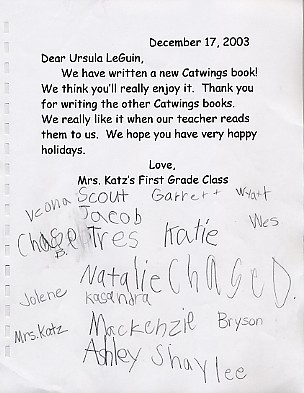 December 17, 2003
Dear Ursula LeGuin,
We have written a new Catwings book!
We think you'll really enjoy it. Thank you
for writing the other Catwings books.
We really like it when our teacher reads
them to us. We hope you have very happy
holidays.
Love,
Mrs. Katz's First Grade Class
Veona Scout Garrett Wyatt
Jacob Wes
Chase B. Tres Katie
Natalie Chase D.
Jolene Kasandra
Mrs. Katz Mackenzie Bryson
Ashley Shaylee